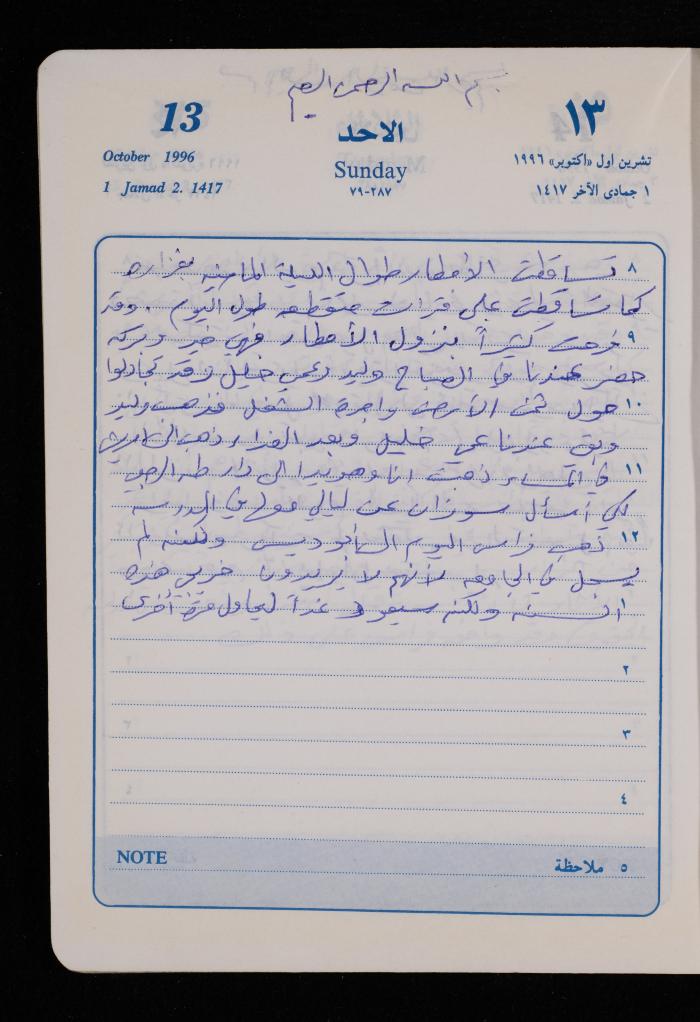 بسم الله الرحمن الرحيم
13
October 1996
1 Jamad 2. 1417
الاحد
Sunday
٧٩-٢٨٧
١٣
تشرين اول «اكتوبر» ١٩٩٦
١ جمادى الآخر ١٤١٧
٨ تساقطت الأمطار طوال الليلة الماضيه بغزاره
كما تساقطت على فترات متقطعه طول اليوم . وقد
٩ فرحت كثيراً بنزول الأمطار فهي خير وبركه
حضر عندنا في الصباح وليد وعمي خليل وقد تجادلوا
١٠ حول ثمن الأرض واجرة الشغل فذهب وليد
وبقي عندنا عمي خليل وبعد الغداء ذهب الى
١١ في المساء ذهبت انا وهويدا الى دار طه
لكي أسأل سوزان عن ليالي في المدرسة
١٢ ذهب فراس اليوم الى أبوديس ولكنه لم
يسجل في الجامعه لأنهم لا يريدون هذه
١ السنه ولكنه سيعود غداً ليحاول مرة أخرى
٢
٣
٤
NOTE
٥ ملاحظة